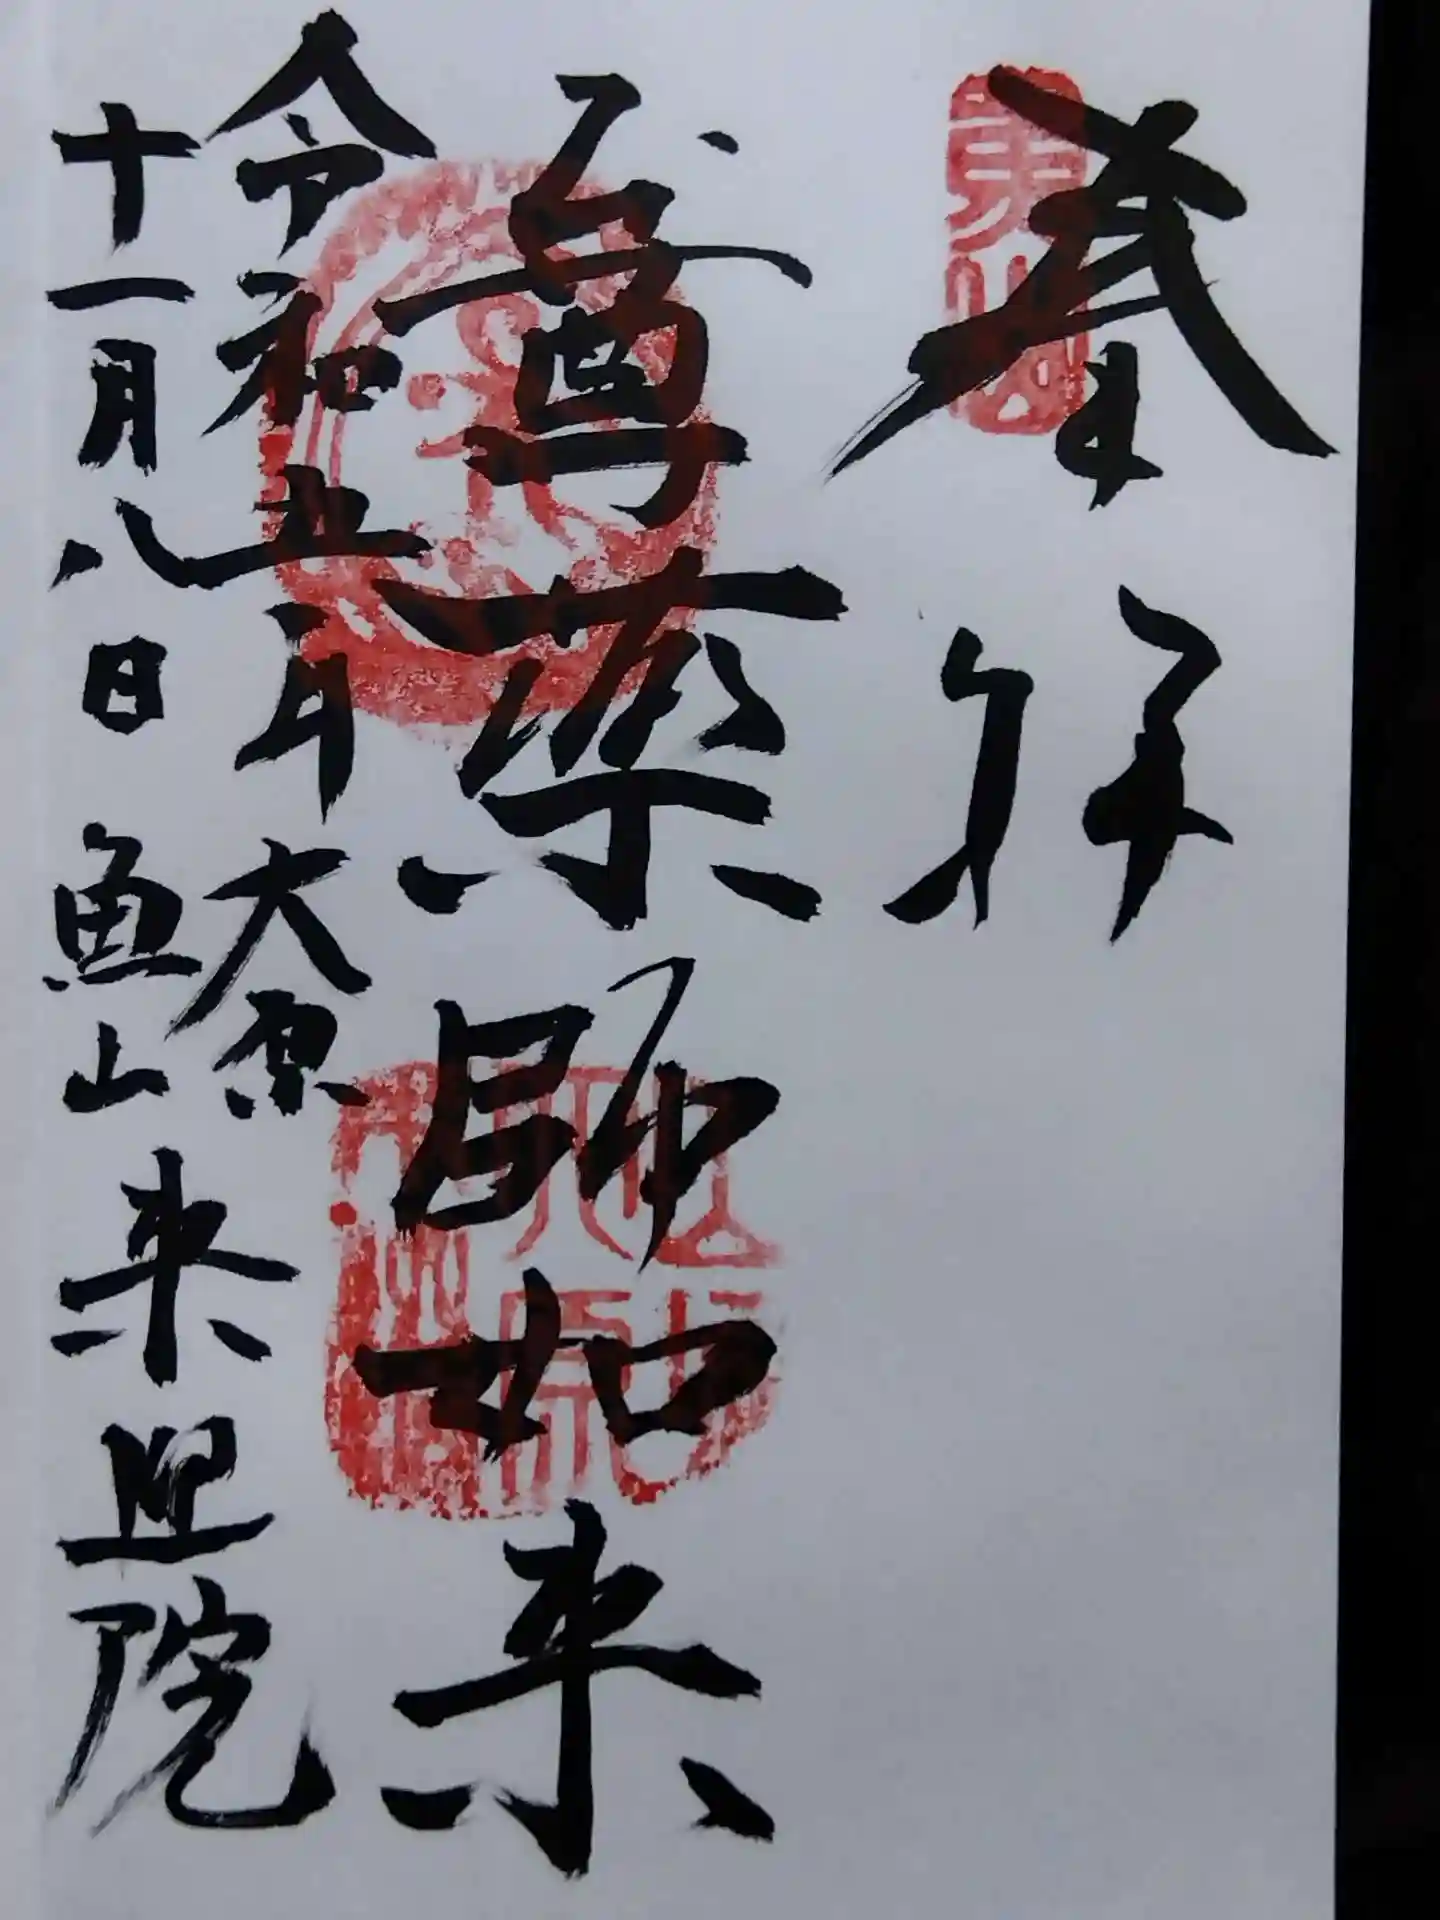 奉拝
尊薬師如来
令和五年 大原
十一月八日 魚山 来迎院